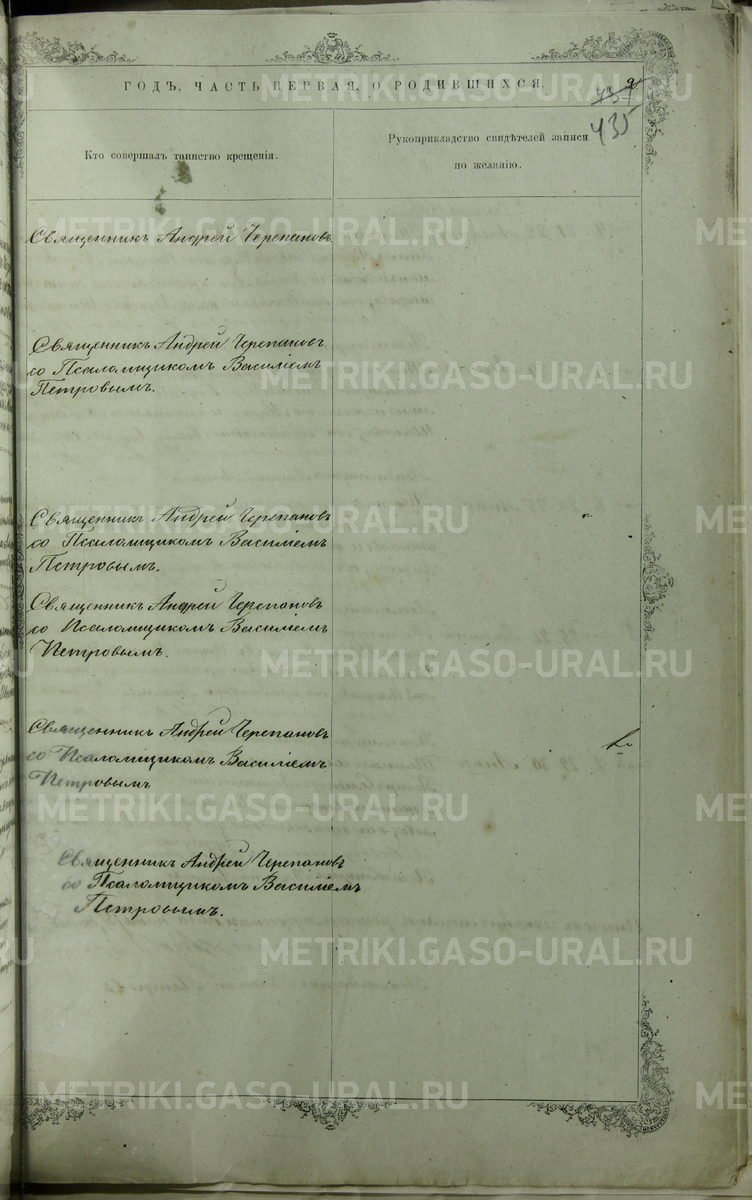 ГОДЪ, ЧАСТЬ ПЕРВАЯ, О РОДИВШИХСЯ.
2
435
Кто совершалъ таинство крещенія.
Рукоприкладство свидѣтелей записи
по желанію.
Священникъ Андрей Черепановъ
Священникъ Андрей Черепановъ
со Псаломщикомъ Василіемъ
Петровымъ.
Священникъ Андрей Черепановъ
со Псаломщикомъ Василіемъ
Петровымъ.
Священникъ Андрей Черепановъ
со Псаломщикомъ Василіемъ
Петровымъ.
Священникъ Андрей Черепановъ
со Псаломщикомъ Василіемъ
Петровымъ
Священникъ Андрей Черепановъ
со Псаломщикомъ Василіемъ
Петровымъ.
METRIKI.GASO-URAL.RU